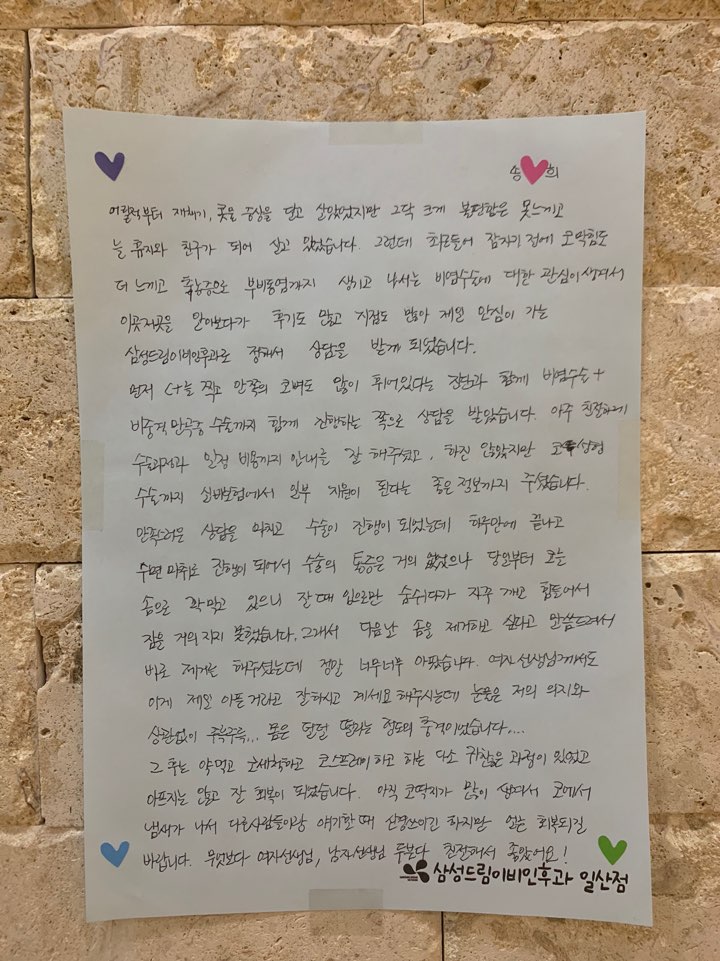 송 희
어릴적부터 재채기, 콧물 증상을 달고 살았었지만 그닥 크게 불편함은 못느끼고
늘 휴지와 친구가 되어 살고 있었습니다. 그런데 최근들어 잠자기 전에 코막힘도
더 느끼고 축농증으로 부비동염까지 생기고 나서는 비염수술에 대한 관심이 생겨서
이곳저곳을 알아보다가 후기도 많고 지점도 많아 제일 안심이 가는
삼성드림이비인후과로 정해서 상담을 받게 되었습니다.
먼저 CT를 찍고 안쪽의 코벽도 많이 휘어있다는 진단과 함께 비염수술 +
비중격만곡증 수술까지 함께 진행하는 쪽으로 상담을 받았습니다. 아주 친절하게
수술과정과 일정 비용까지 안내를 잘 해주셨고, 하진 않았지만 코성형
수술까지 실비보험에서 일부 지원이 된다는 좋은 정보까지 주셨습니다.
만족스러운 상담을 마치고 수술이 진행이 되었는데 하루만에 끝나고
수면 마취로 진행이 되어서 수술의 통증은 거의 없었으나 당일부터 코는
솜으로 꽉 막고 있으니 잘 때 입으로만 숨쉬다가 자꾸 깨고 힘들어서
잠을 거의 자지 못했습니다. 그래서 다음날 솜을 제거하고 싶다고 말씀드려서
바로 제거는 해주셨는데 정말 너무너무 아팠습니다. 여자 선생님께서도
이게 제일 아플거라고 잘하시고 계세요 해주시는데 눈물은 저의 의지와
상관없이 주륵주륵... 몸은 덜덜 떨리는 정도의 충격이었습니다....
그 후는 약먹고 코세척하고 코스프레이하고 하는 다소 귀찮은 과정이 있었고
아프지는 않고 잘 회복이 되었습니다. 아직 코딱지가 많이 생겨서 코에서
냄새가 나서 다른사람들이랑 얘기할 때 신경쓰이긴 하지만 얼른 회복되길
바랍니다. 무엇보다 여자선생님, 남자선생님 두분다 친절해서 좋았어요!
삼성드림이비인후과 일산점